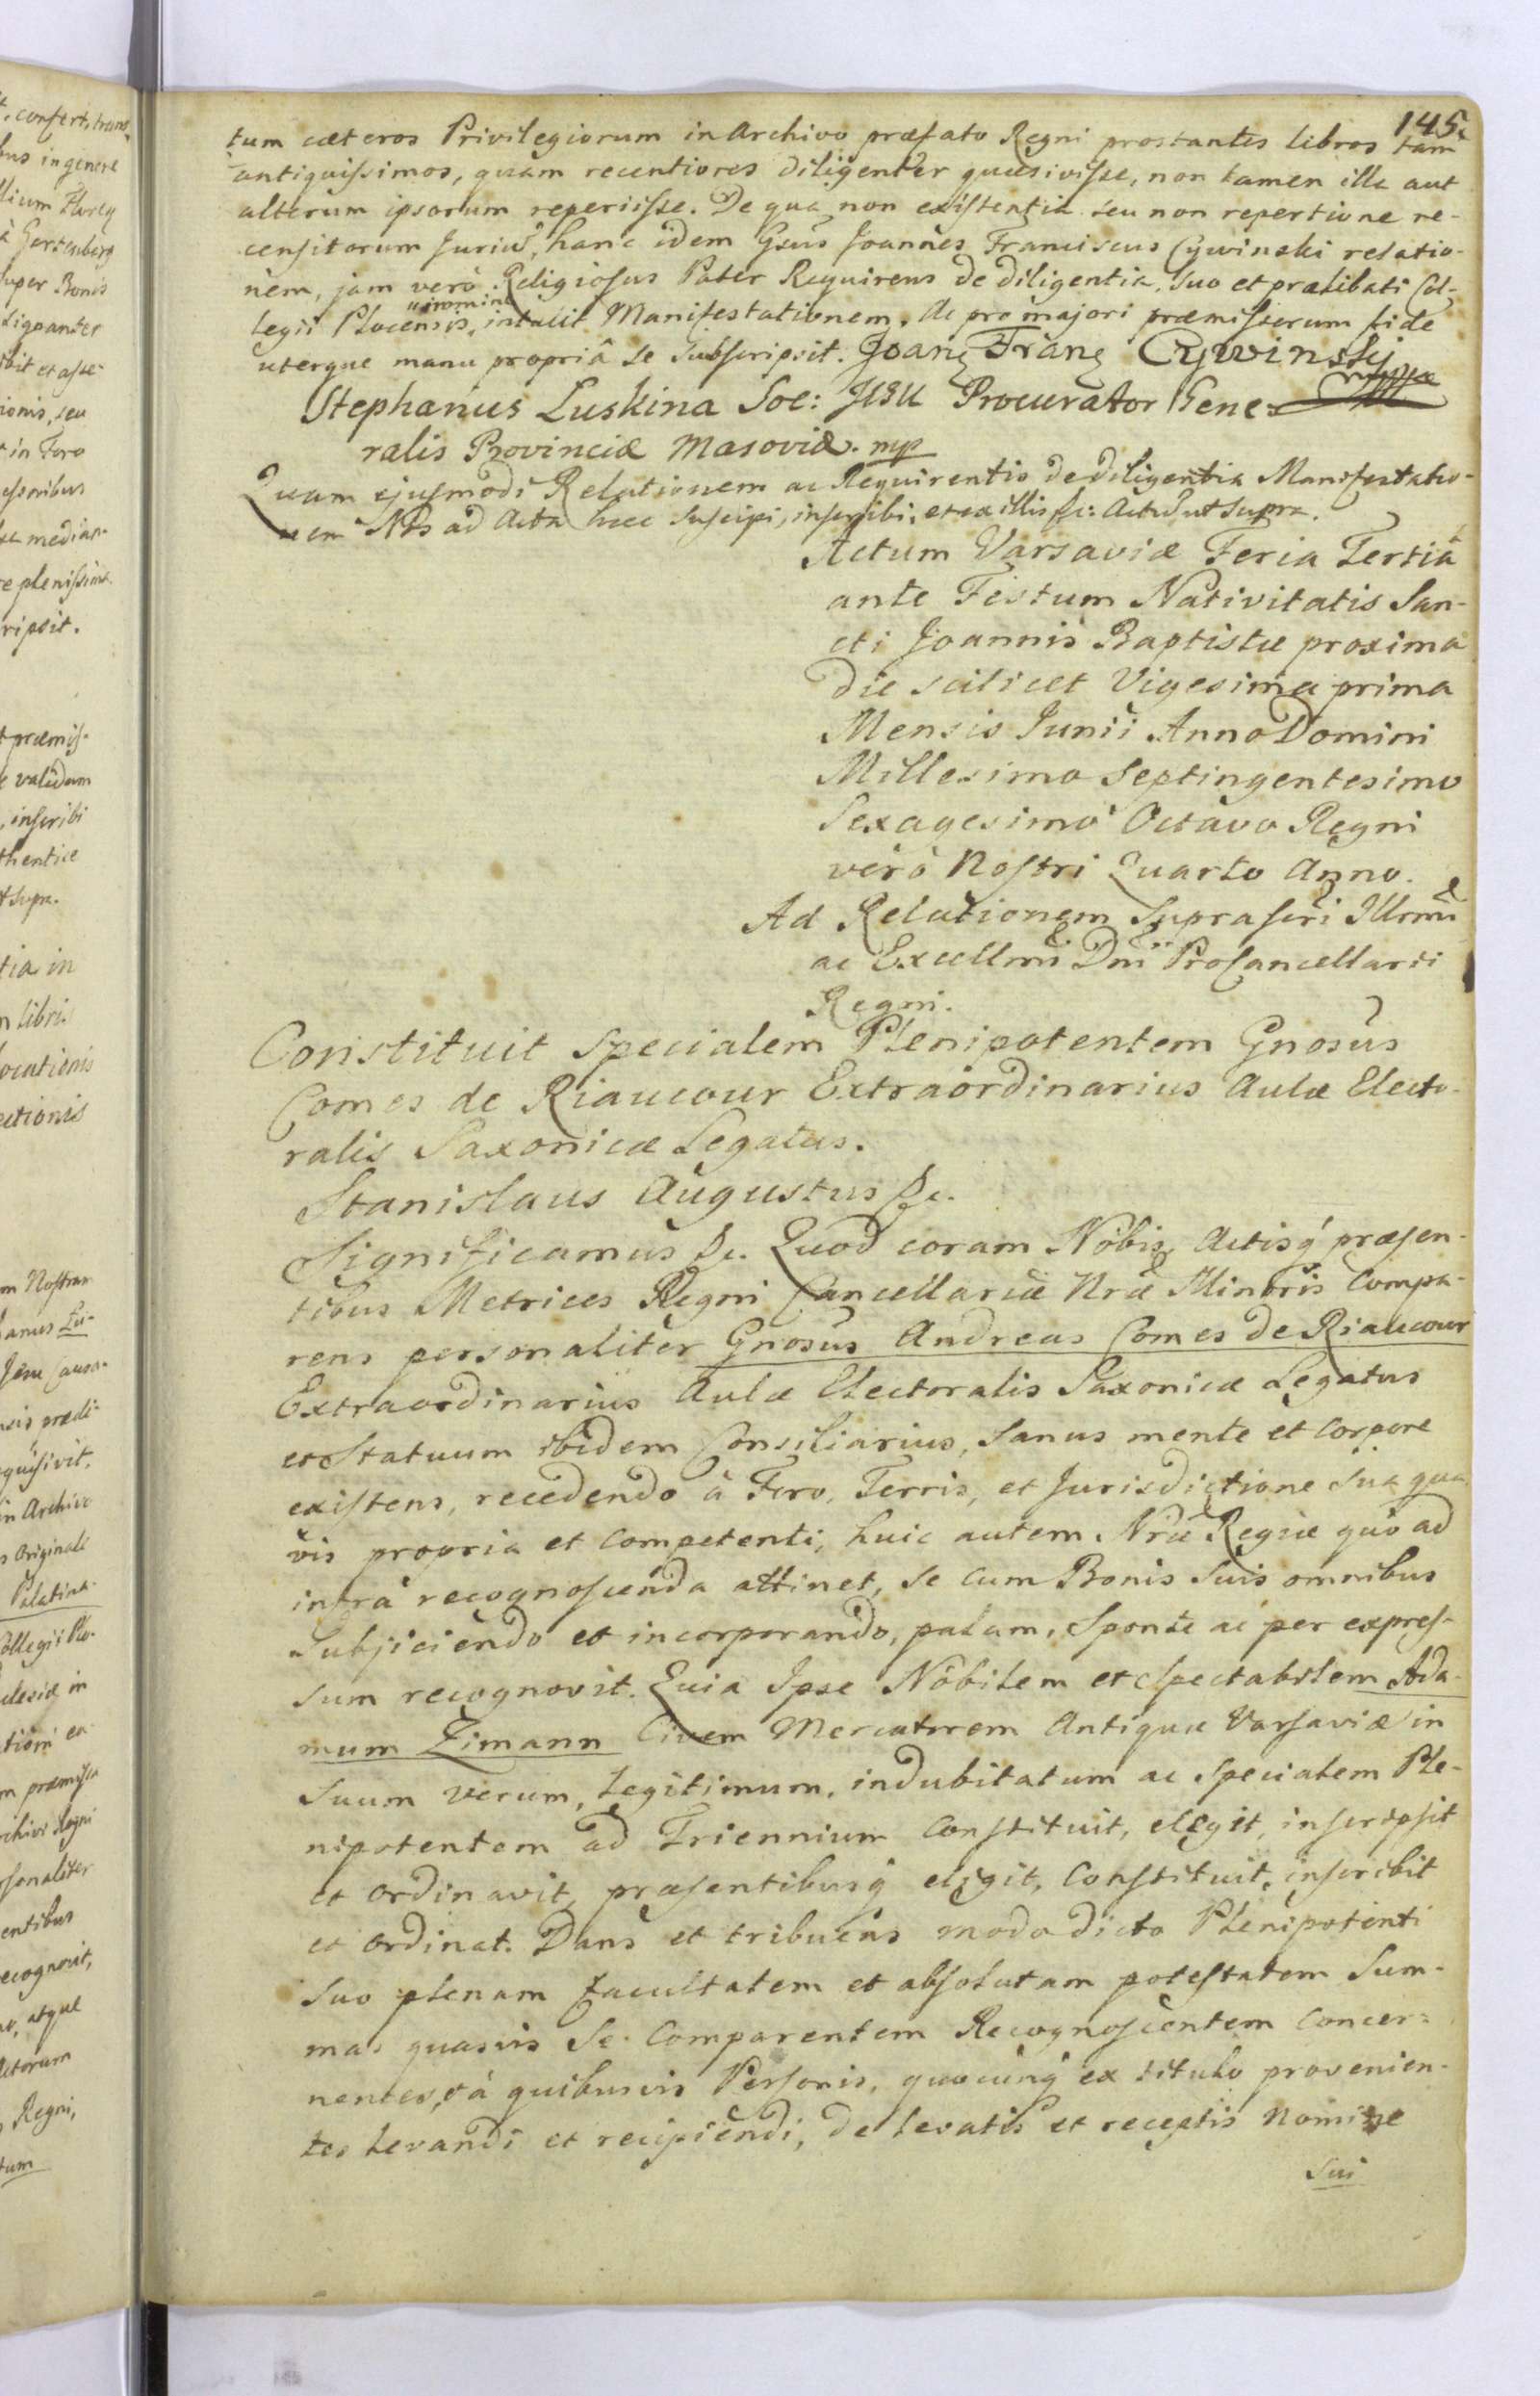 145.
tum cæteros Privilegiorum in Archivo præfato Regni prostantes libros tam
antiquissimos, quàm recentiores diligenter quæsivisse, non tamen illa aut
alterum ipsorum reperiisse. De qua non existentia seu non repertione re-
censitorum Jurium, hanc idem Gsus Joannes Franciscus Cywinski relatio-
nem, jam verò Religiosus Pater Requirens de diligentia, suo et prælibati Col-
legii Plocensis nomine intulit Manifestationem. Ac pro majori præmissorum fide
uterque manu propriâ se subscripsit. Joanꝫ Franꝫ Cywinskj
mppa
Stephanus Luskina Soc: JESU Procurator Gene-
ralis Provinciæ Masoviæ. mp
Quam ejusmodi Relationem ac Requirentis de diligentia Manifestatio-
nem Nos ad Acta hæc suscipi, inscribi, et ex illis &c: Actũ ut supra.
Actum Varsaviæ Feria Tertiâ
ante Festum Nativitatis San-
cti Joannis Baptistæ proxima
die scilicet Vigesima prima
Mensis Junii Anno Domini
Millesimo Septingentesimo
Sexagesimo Octavo Regni
verò Nostri Quarto Anno.
Ad Relationem suprascri Illrmi
ac Excellmi Dni ProCancellarii
Regni.
Constituit specialem Plenipotentem Gnosus
Comes de Riaucour Extraordinarius Aulæ Electo-
ralis Saxonicæ Legatus.
Stanislaus Augustus &c.
Significamus &c. Quod coram Nobis Actisq́ præsen-
tibus Metrices Regni Cancellariæ Nræ Minoris Compa-
rens personaliter Gnosus Andreas Comes de Riaucour
Extraordinarius Aulæ Electoralis Saxonicæ Legatus
et Statuum ibidem Consiliarius, sanus mente et corpore
existens, recedendo à Foro, Terris, et Jurisdictione sua qua-
vis propria et competenti, huic autem Nræ Regiæ quo ad
infra recognoscenda attinet, se cum Bonis suis omnibus
subjiciendo et incorporando, palam, sponte ac per expres-
sum recognovit. Quia Ipse Nobilem et Spectabilem Ada-
mum Zimann Civem Mercatorem Antiquæ Varsaviæ in
suum verum, legitimum, indubitatum ac specialem Ple-
nipotentem ad Triennium Constituit, elegit, inscripsit
et ordinavit, præsentibusq́ eligit, Constituit, inscribit
et ordinat. Dans et tribuens modo dicto Plenipotenti
suo plenam facultatem et absolutam potestatem Sum-
mas quasvis Se Comparentem Recognoscentem Concer-
nentes, & à quibusvis Personis, quocunq́ ex titulo provenien-
tes levandi et recipiendi, de levatis et receptis nomine
sui